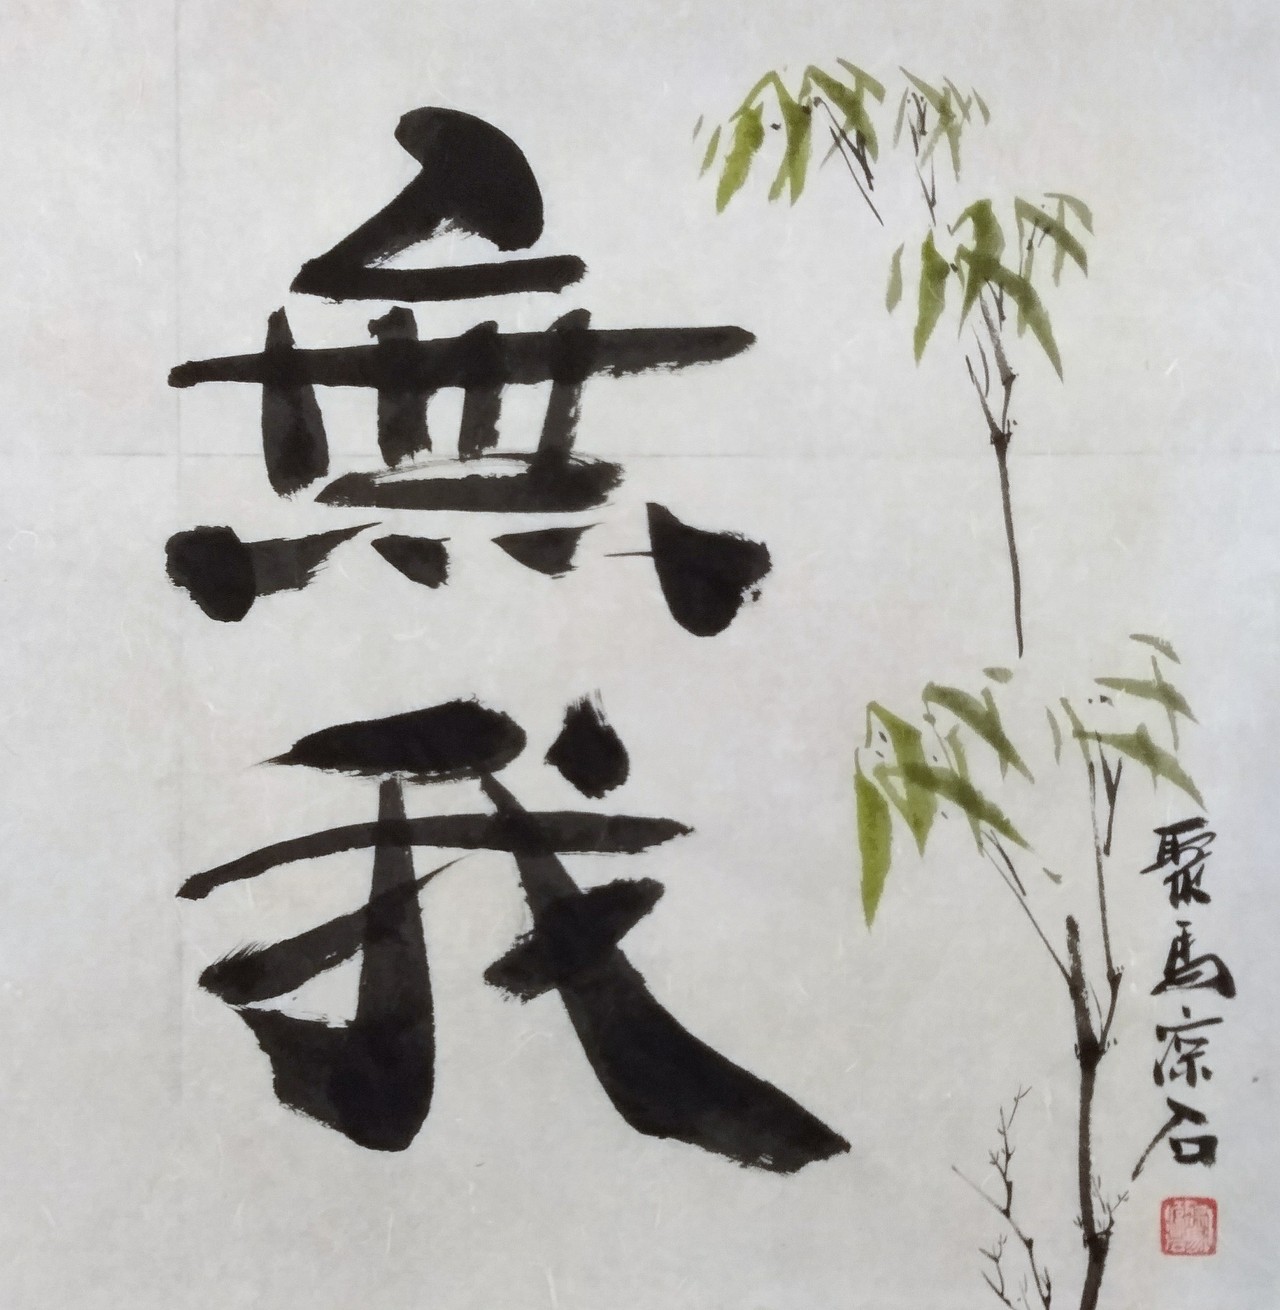 無我
聚馬寮石